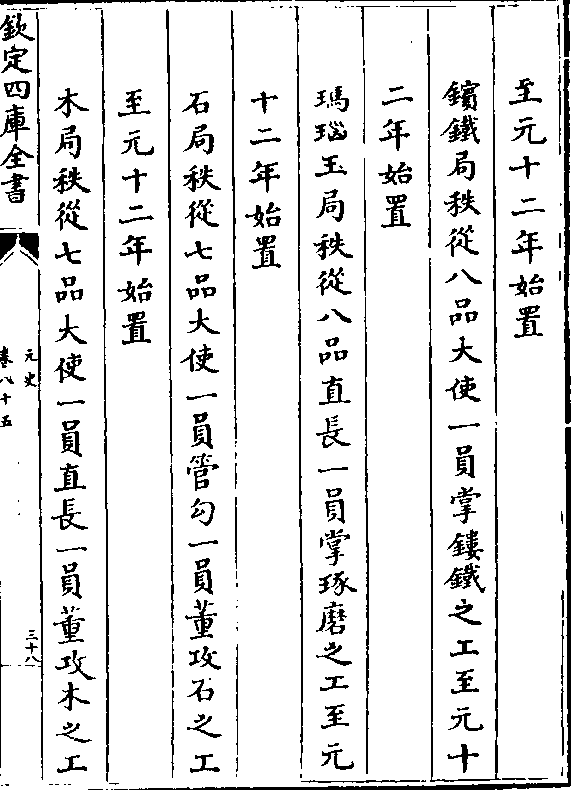 至元十二年始置
鑌鐵局秩從八品大使一員掌鏤鐵之工至元十
二年始置
瑪瑙玉局秩從八品直長一員掌琢磨之工至元
十二年始置
石局秩從七品大使一員管勾一員董攻石之工
至元十二年始置
木局秩從七品大使一員直長一員董攻木之工
欽定四庫全書
元史
卷八十五
三十八